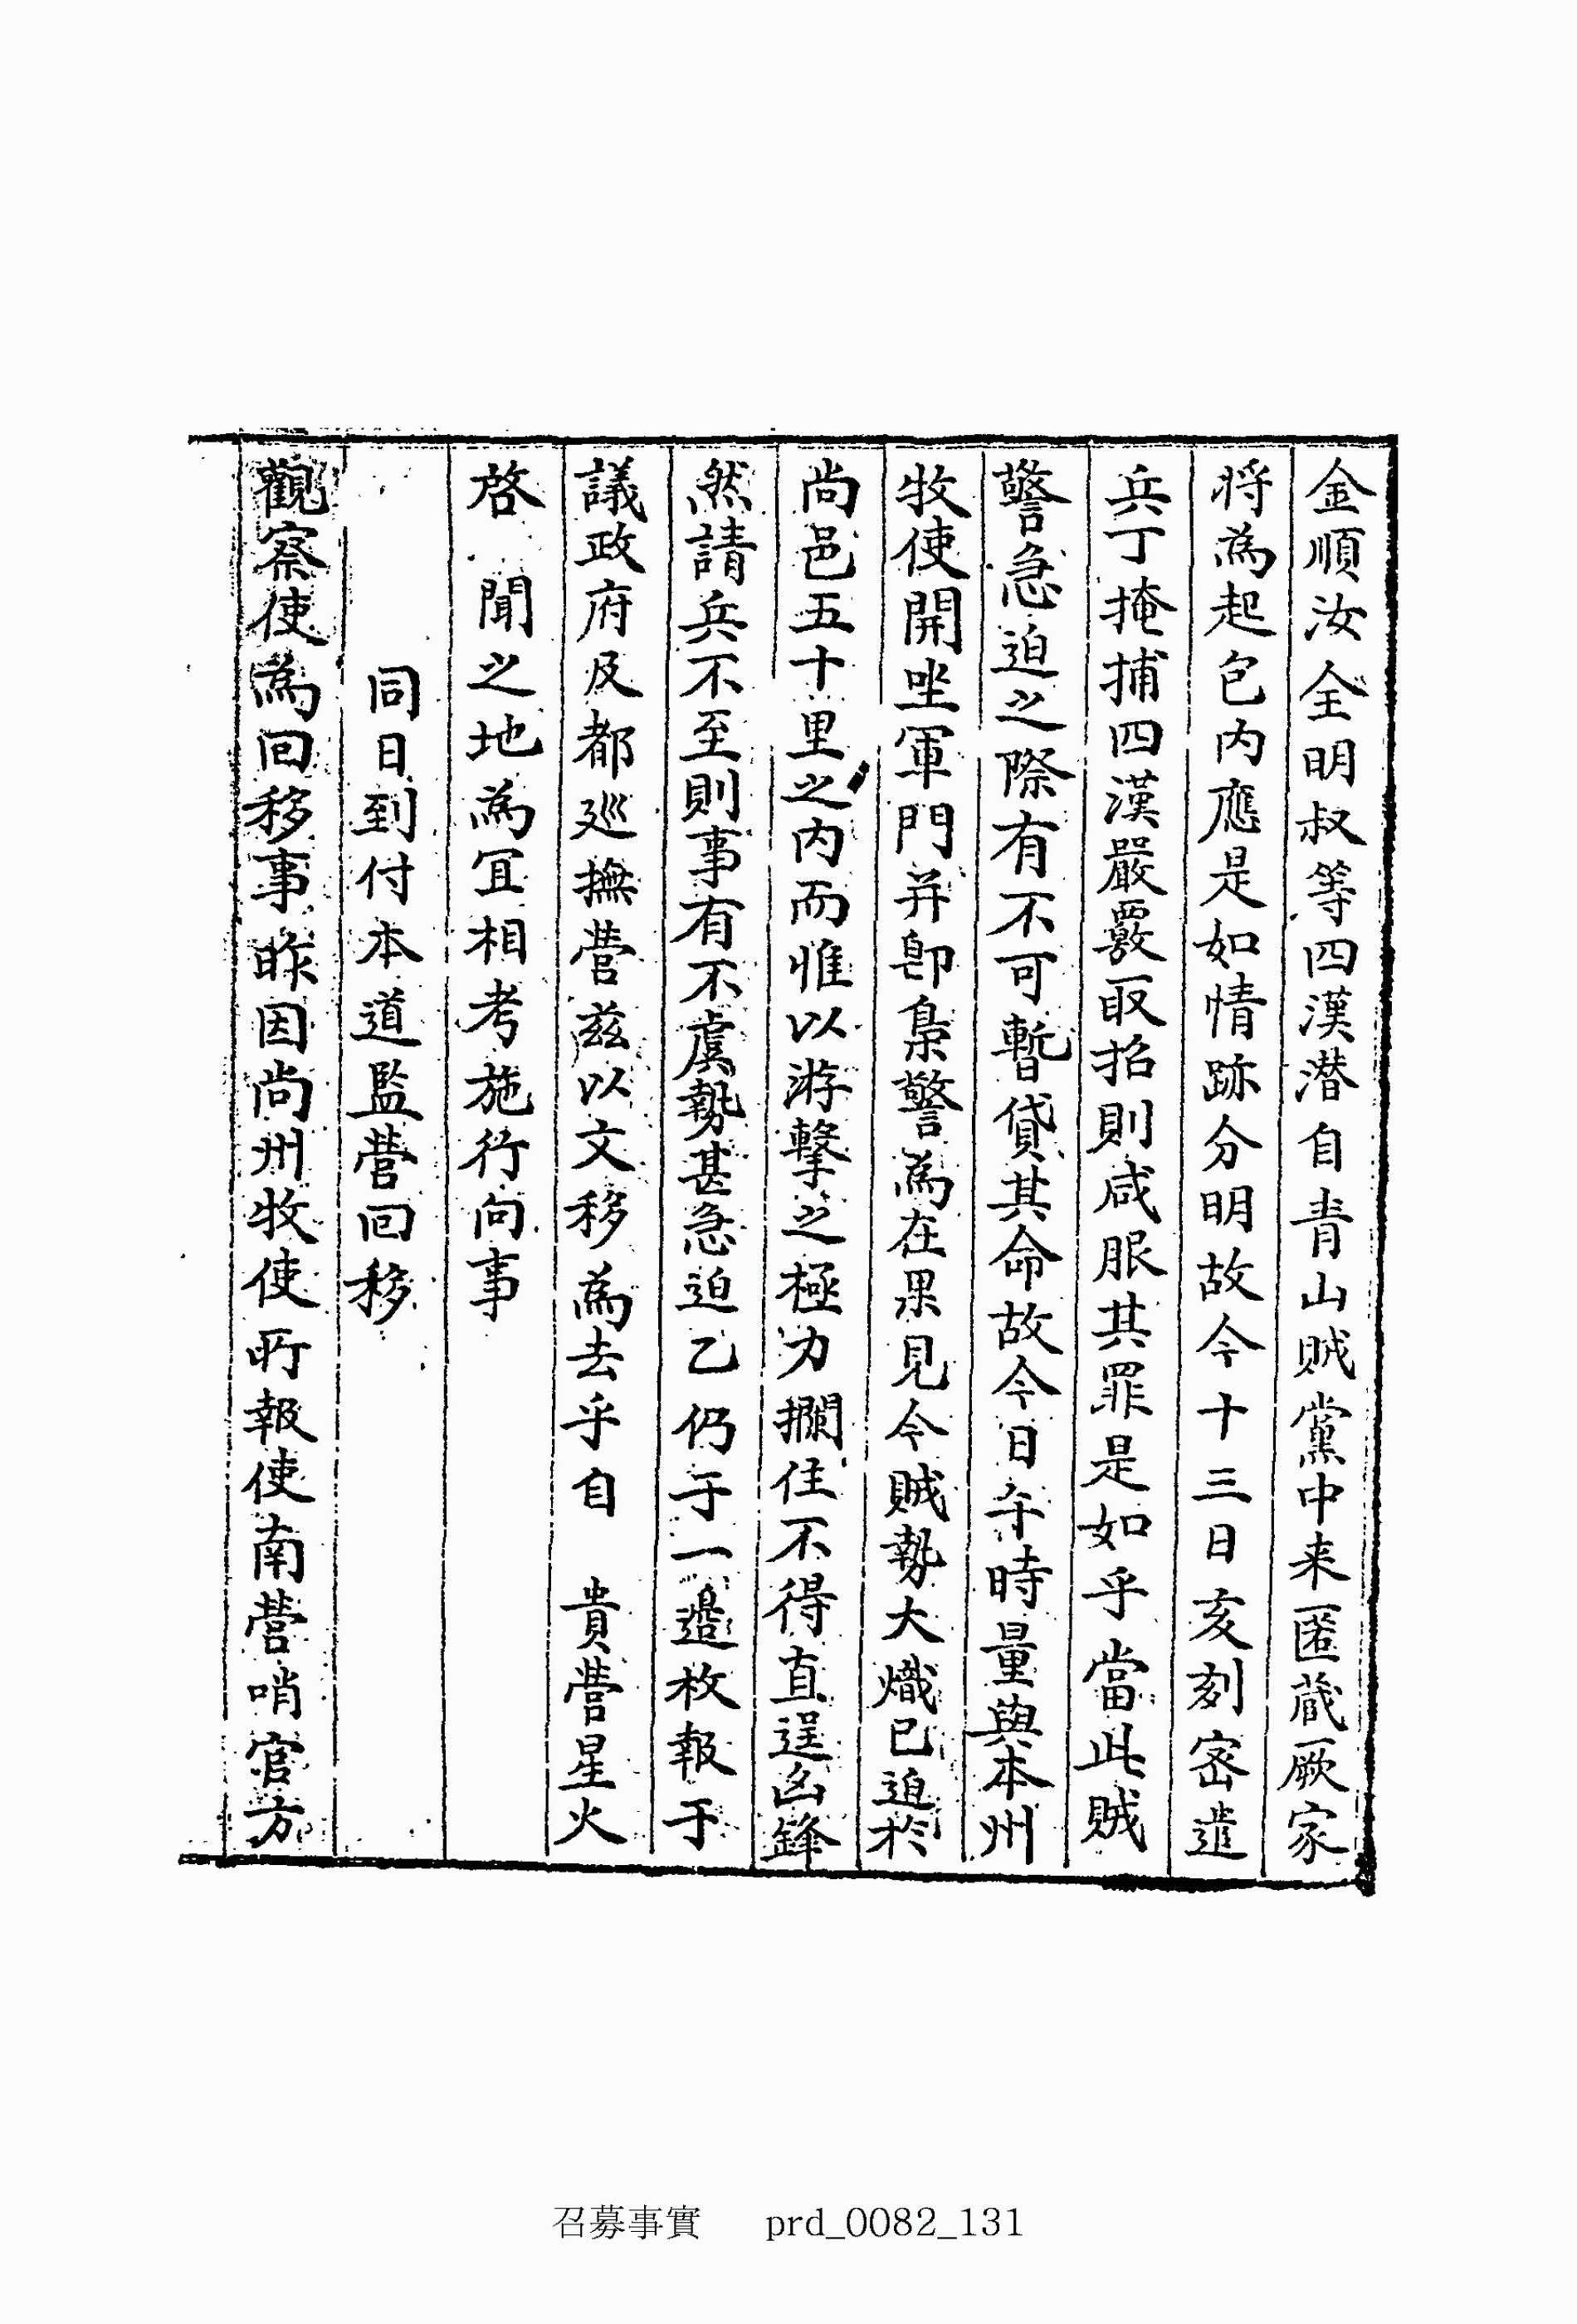 金順汝全明叔等四漢潜自青山賊黨中来匿蔵厥家
将為起包内應是如情跡分明故今十三日亥刻宻遣
兵丁掩捕四漢嚴覈取招則咸服其罪是如乎當此賊
警急迫之際有不可暫貸其命故今日午時量與本州
牧使開坐軍門并卽梟警為在果見今賊勢大熾已迫於
尚邑五十里之内而惟以游擊之極力攔住不得直逞凶鋒
然請兵不至則事有不虞勢甚急迫乙仍于一邉枚報于
議政府及都廵撫營兹以文移為去乎自 貴營星火
啓 聞之地為冝相考施行向事
同日到付本道監營回移
觀察使為回移事昨因尚州牧使所報使南營哨官方
召募事實 prd_0082_131